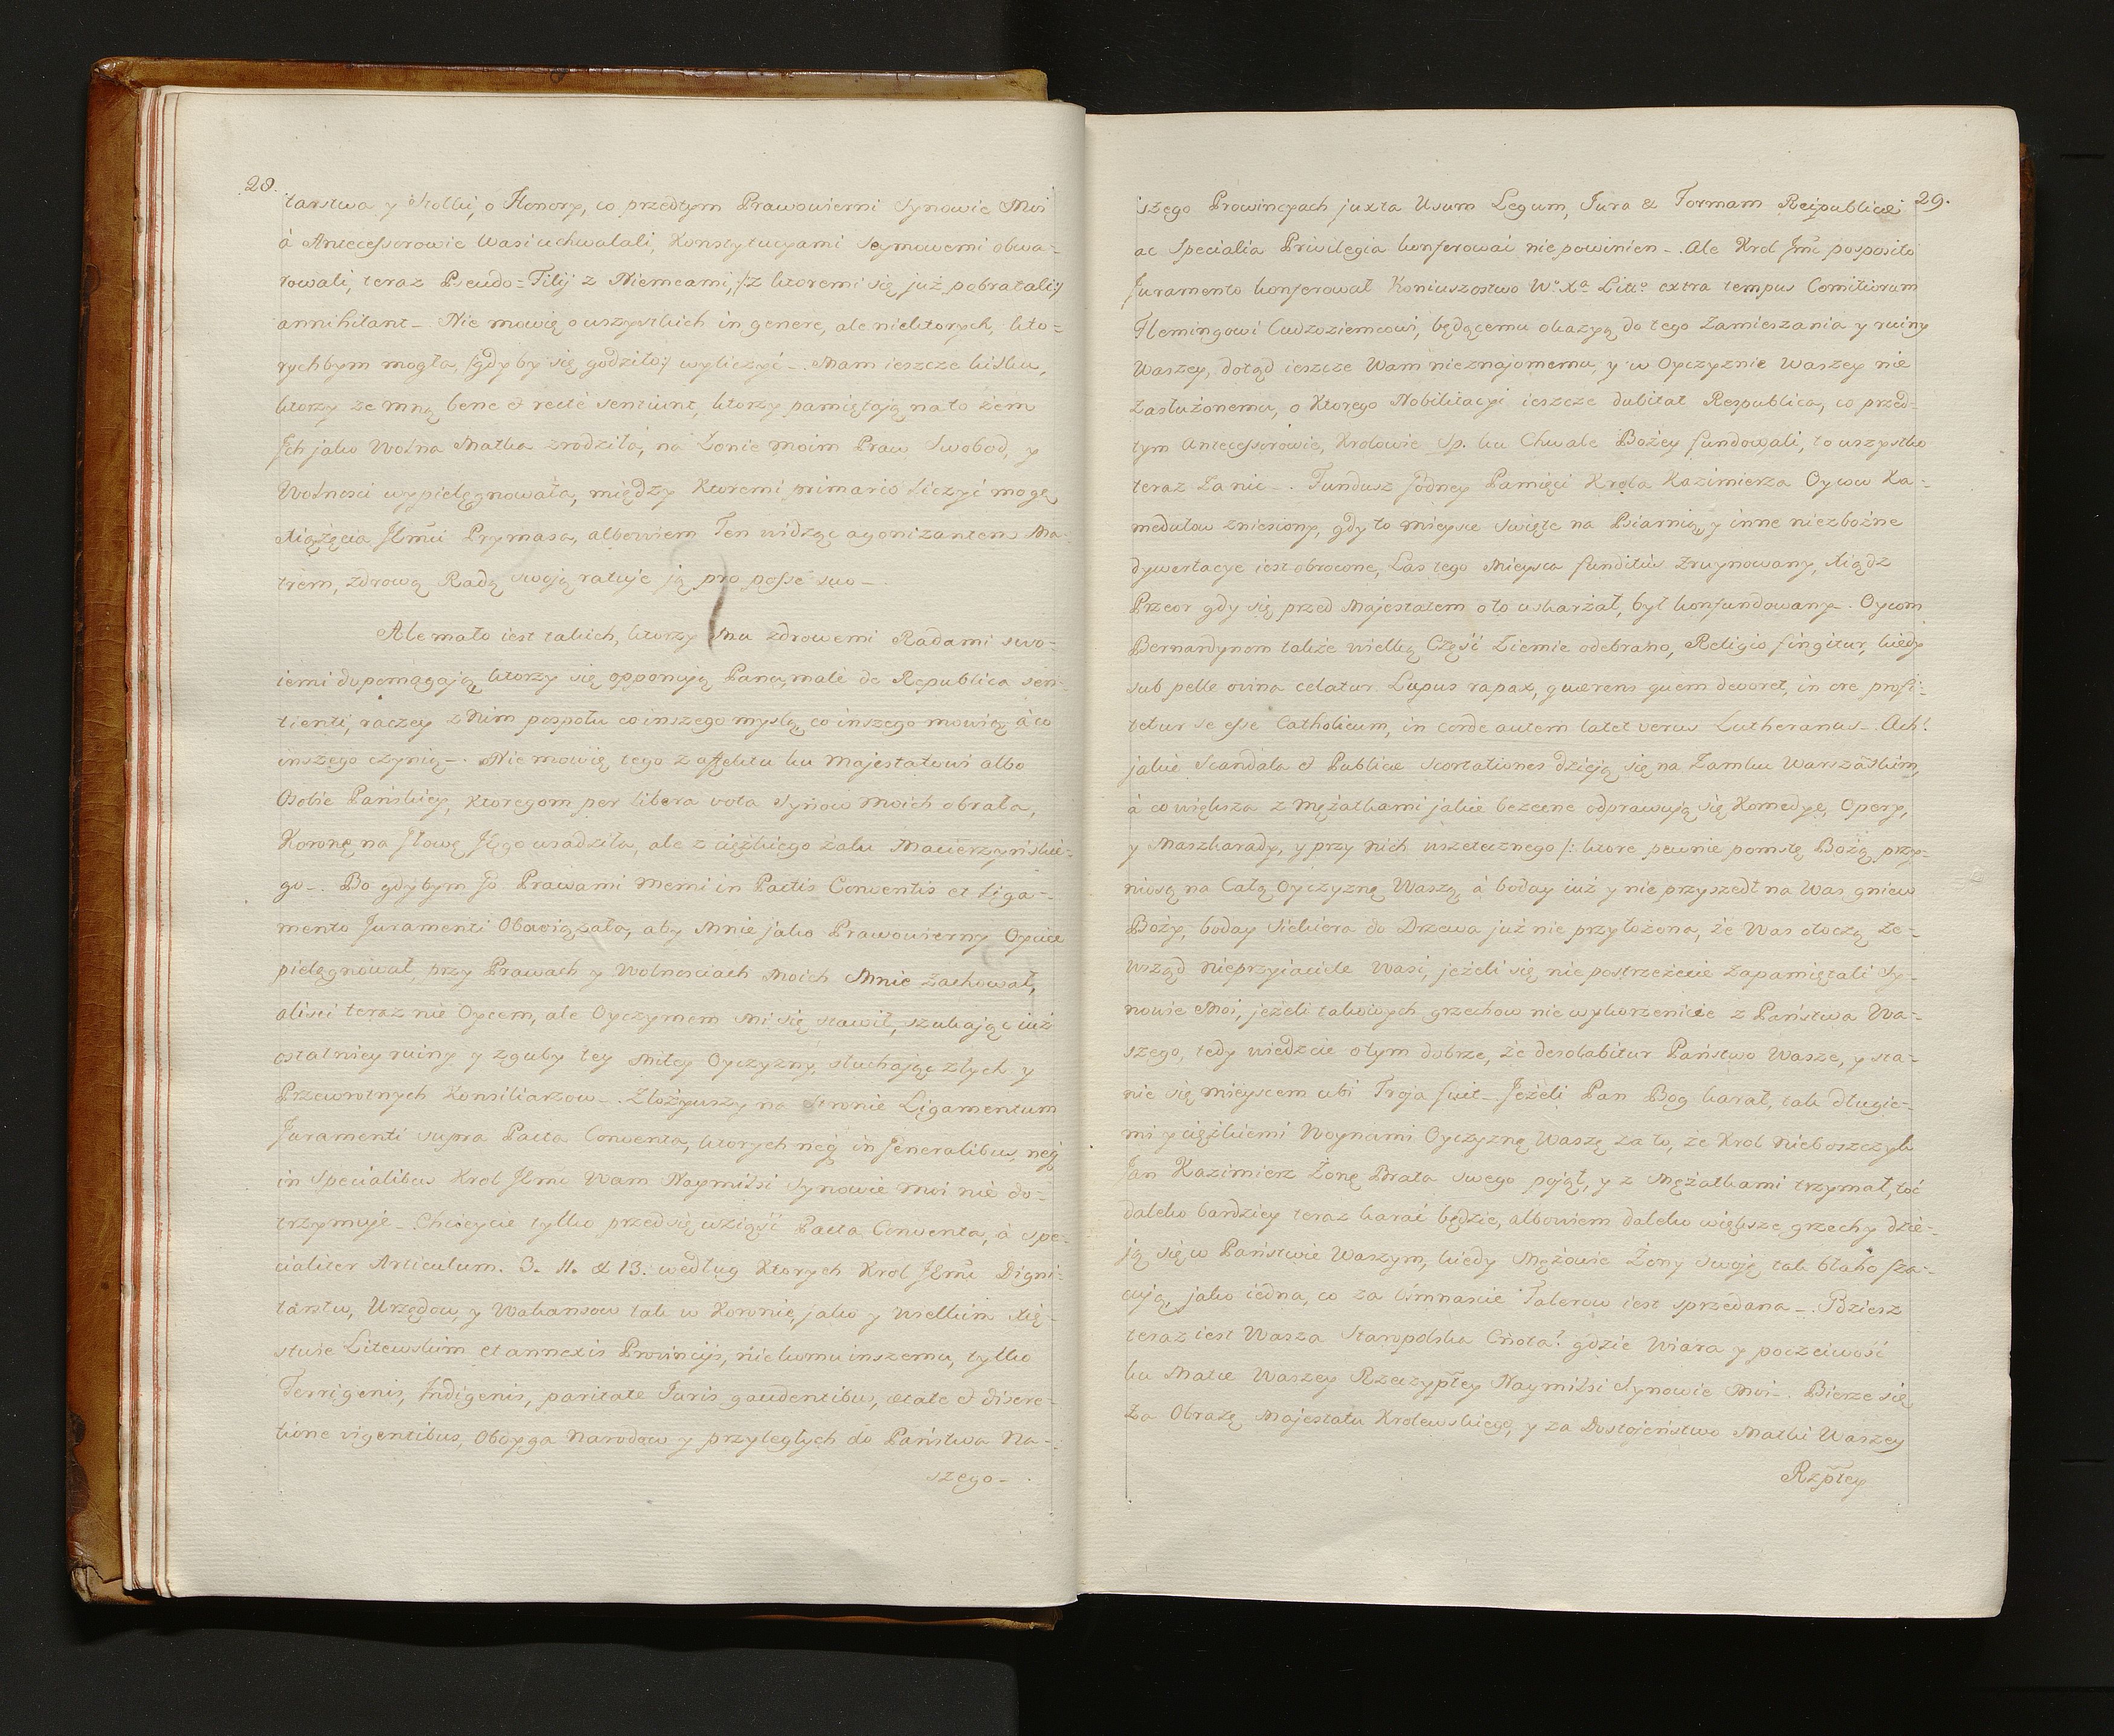 28.
tarstwa y Stolki, o Honory, co przedtym Prawowierni Synowie Moi
á Antecessorowie Wasi uchwalali, Konstytucyami Seymowemi obwa-
rowali, teraz Pseudo=Filij z Niemcami, /:z ktoremi się już pobratali:/
annihilant_ Nie mowię o wszystkich in genere, ale niektorych, kto-
rychbym mogła, /:gdyby się godziło:/ wyliczyć_. Mam ieszcze kilku,
ktorzy ze mną bene et recté sentiunt, ktorzy pamiętaią na to żem
Jch jako Wolna Matka zrodziła, na Łonie moim Praw Swobod, y
Wolnosci wypielęgnowała, między Ktoremi primario liczyć mogę
Xiążęcia JEmći Prymasa, albowiem Ten widząc agonizantem Ma-
trem, zdrową Radą swoją ratuje ją pro posse suo_
Ale mało iest takich, ktorzy Mu zdrowemi Radami swo-
iemi dopomagają, ktorzy się opponują Panu, malé de Republica sen-
tienti, raczey z Nim pospołu co inszego myslą, co inszego mowią á co
inszego czynią_. Nie mowię tego z affektu ku Majestatowi albo
Osobie Pańskiey, Ktoregom per libera vota Synow Moich obrała,
Koronę na Głowę Jego wsadziła, ale z cięzkiego żalu Macierzynskie-
go_. Bo gdybym Go Prawami Memi in Pactis Conventis et Liga-
mento Juramenti Obowiązała, aby Mnie jako Prawowierny Oyciec
pielęgnował, przy Prawach y Wolnosciach Moich Mnie zachował,
alisci teraz nie Oycem, ale Oyczymem Mi się stawił, szukając iuż
ostatniey ruiny y zguby tey Miłey Oyczyzny, słuchając złych y
Przewrotnych Konsiliarzow_. Złożywszy na Stronie Ligamentum
Juramenti supra Pacta Conventa, ktorych neq in Generalibus, neq
in Specialibus Krol JEmć Wam Naymilsi Synowie moi nie do-
trzymuje_ Chcieycie tylko przed się wziąść Pacta Conventa, á spe-
cialiter Articulum. 3. 11. et 13. według Ktorych Krol JEmć Digni-
tarstw, Urzędow, y Wakansow tak w Koronie, jako y Wielkim Xię-
stwie Litewskim et annexis Provincijs, nikomu inszemu, tylko
Terrigenis, Indigenis, paritate Juris gaudentibus, ætate et discre-
tione vigentibus, Oboyga Narodow y przyległych do Państwa Na-
szego_.
29.
szego Prowincyach juxta Usum Legum, Jura et Formam Reipublicæ
ac Specialia Privilegia konferować nie powinien_. Ale Krol Jmć posposito
Juramento konferował Koniuszostwo Wo Xa Litto extra tempus Comitiorum
Flemingowi Cudzoziemcowi, będącemu okazyą do tego Zamieszania y ruiny
Waszey, dotąd ieszcze Wam nieznajomemu, y w Oyczyznie Waszey nie
Zasłużonemu, o Ktorego Nobilitacyi ieszcze dubitat Respublica, co przed-
tym Antecessorowie, Krolowie Sp. ku Chwale Bożey fundowali, to wszystko
teraz Za nic_. Fundusz Godney Pamięci Krola Kazimierza Oycow Ka-
medulow zniesiony, gdy to mieysce święte na Psiarnią y inne niezbożne
dywertacye iest obrocone, Las tego Mieysca funditùs zruynowany, Xiądz
Przeor gdy się przed Majestatem o to uskarżał, był konfundowany. Oycom
Bernardynom także wielką Część Ziemie odebrano, Religio fingitur, kiedy
sub pelle ovina celatur Lupus rapax, quærens quem devoret, in ore profi-
tetur se esse Catholicum, in corde autem latet verus Lutheranus_. Ach!
jakie Scandala et Publicæ Scortationes dzieją się na Zamku Warszaskim,
á co większa z Mężatkami jakie bezecne odprawują się Komedye, Opery,
y Maszkarady, y przy nich wszetecznego /: ktore pewnie pomstę Bożą przy-
niosą na Całą Oyczyznę Waszą, á boday iuż y nie przyszedł na Was gniew
Boży, boday Siekiera do Drzewa już nie przyłożona, że Was otoczą Ze-
wsząd nieprzyiaciele Wasi, jeżeli się nie postrzeżecie Zapamiętali Sy-
nowie Moi, jeżeli takowych grzechow nie wykorzenicie z Państwa Wa-
szego, tedy wiedzcie o tym dobrze, że desolabitur Państwo Wasze, y sta-
nie się mieyscem ubi Troja fuit_ Jeżeli Pan Bog karał, tak długie-
mi y cięzkiemi Woynami Oyczyznę Waszę za to, że Krol Nieboszczyk
Jan Kazimierz Żonę Brata swego pojął, y z Mężatkami trzymał, toć
daleko bardziey teraz karać będzie, albowiem daleko większe grzechy dzie-
ją się w Państwie Waszym, kiedy Mężowie Żony swoje tak błaho sza-
cują, jako iedna, co za Ośmnascie Talerow iest sprzedana_. Gdziesz
teraz iest Wasza Staropolska Cnota! gdzie Wiara y poczciwość
ku Matce Waszey Rzeczypłey Naymilsi Synowie Moi_. Bierze się
Za Obrazę Majestatu Krolewskiego, y za Dostojeństwo Matki Waszey
Rzpłey